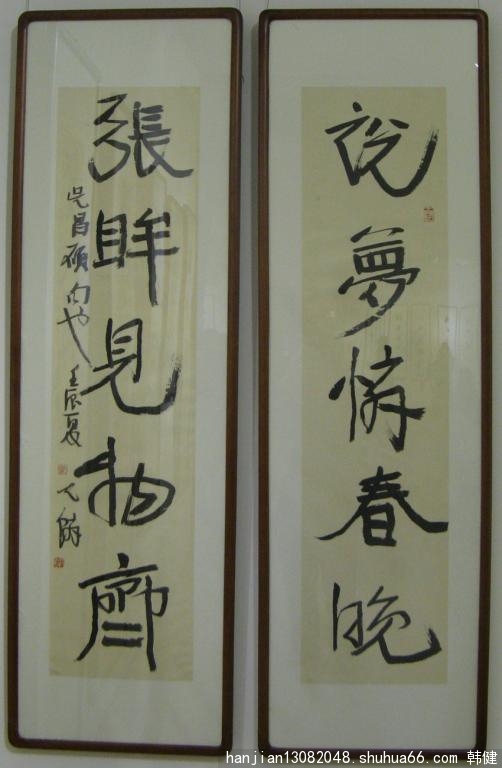 說夢憐春晚
張眸見物齊
吴昌碩句也 壬辰夏
hanjian13082048.shuhua66.com 韩健